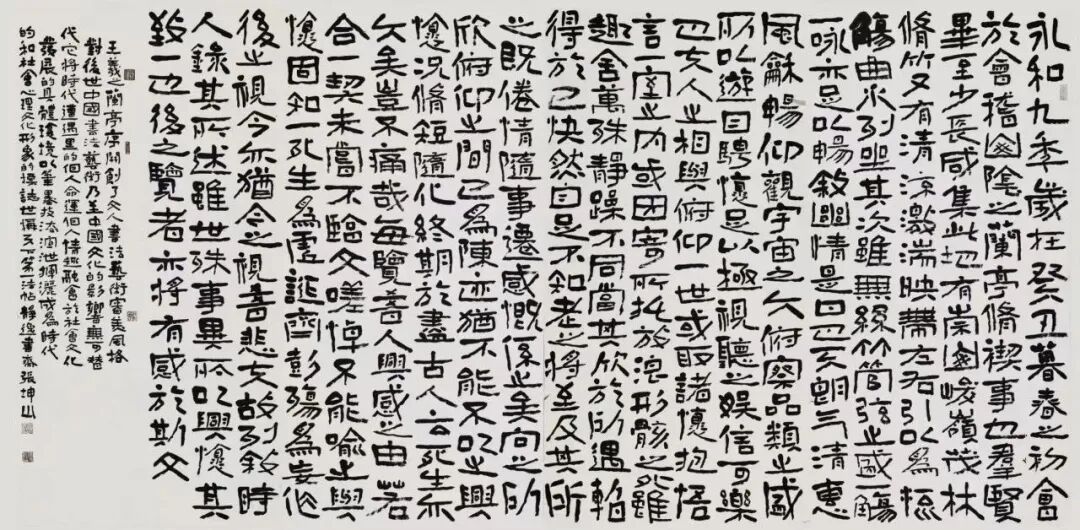 永和九年歲在癸丑暮春之初會
於會稽山陰之蘭亭脩禊事也羣賢
畢至少長咸集此地有崇山峻嶺茂林
脩竹又有清流激湍映帶左右引以為流
觴曲水列坐其次雖無絲竹管弦之盛一觴
一咏亦足以暢敘幽情是日也天朗气清惠
風龢暢仰觀宇宙之大俯察品類之盛
所以遊目騁懷足以極視聽之娛信可樂
也夫人之相與俯仰一世或取諸懷抱悟
言一室之內或因寄所託放浪形骸之外雖
趣舍萬殊靜躁不同當其欣於所遇暫
得於己快然自足不知老之將至及其所
之既倦情隨事遷感慨係之矣向之所
欣俯仰之間已為陳迹猶不能不以之興
懷況脩短隨化終期於盡古人云死生亦
大矣豈不痛哉每覽昔人興感之由若
合一契未嘗不臨文嗟悼不能喻之與
懷固知一死生為虛誕齊彭殤為妄作
後之視今亦猶今之視昔悲夫故列敘時
人錄其所述雖世殊事異所以興懷其
致一也後之覽者亦將有感於斯文
王羲之蘭亭序開創了文人書法藝術審美風格
對後世中國書法藝術乃至個國文化的影響無可替
代它將時代遭遇里的個人命運個人情趣融會於社會文化
發展的具體環境以筆墨技法宣泄揮灑成為時代
的和社會心理文化形象的標誌世稱天下第一法帖靜逸書齋張坤山